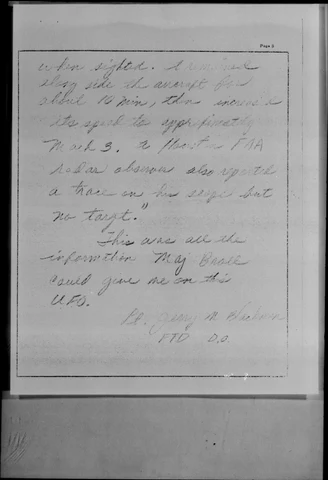 Page 2
when sighted. It remained
along side the aircraft for
about 10 min, then increased
its speed to approximately
Mach 3. A Houston FAA
radar observer also reported
a trace on his scope but
no target."
This was all the
information Maj
could give me on this
UFO.
Lt. Jerry
FTD D.O.